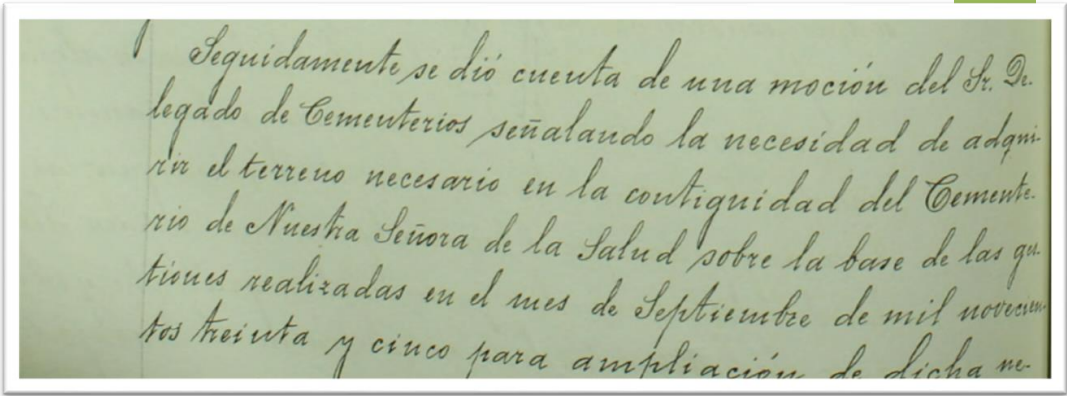 Seguidamente se dió cuenta de una moción del Sr. De-
legado de Cementerios señalando la necesidad de adqui-
rir el terreno necesario en la contiguidad del Cemente-
rio de Nuestra Señora de la Salud sobre la base de las ges-
tiones realizadas en el mes de Septiembre de mil novecien-
tos treinta y cinco para ampliación de dicha ne-